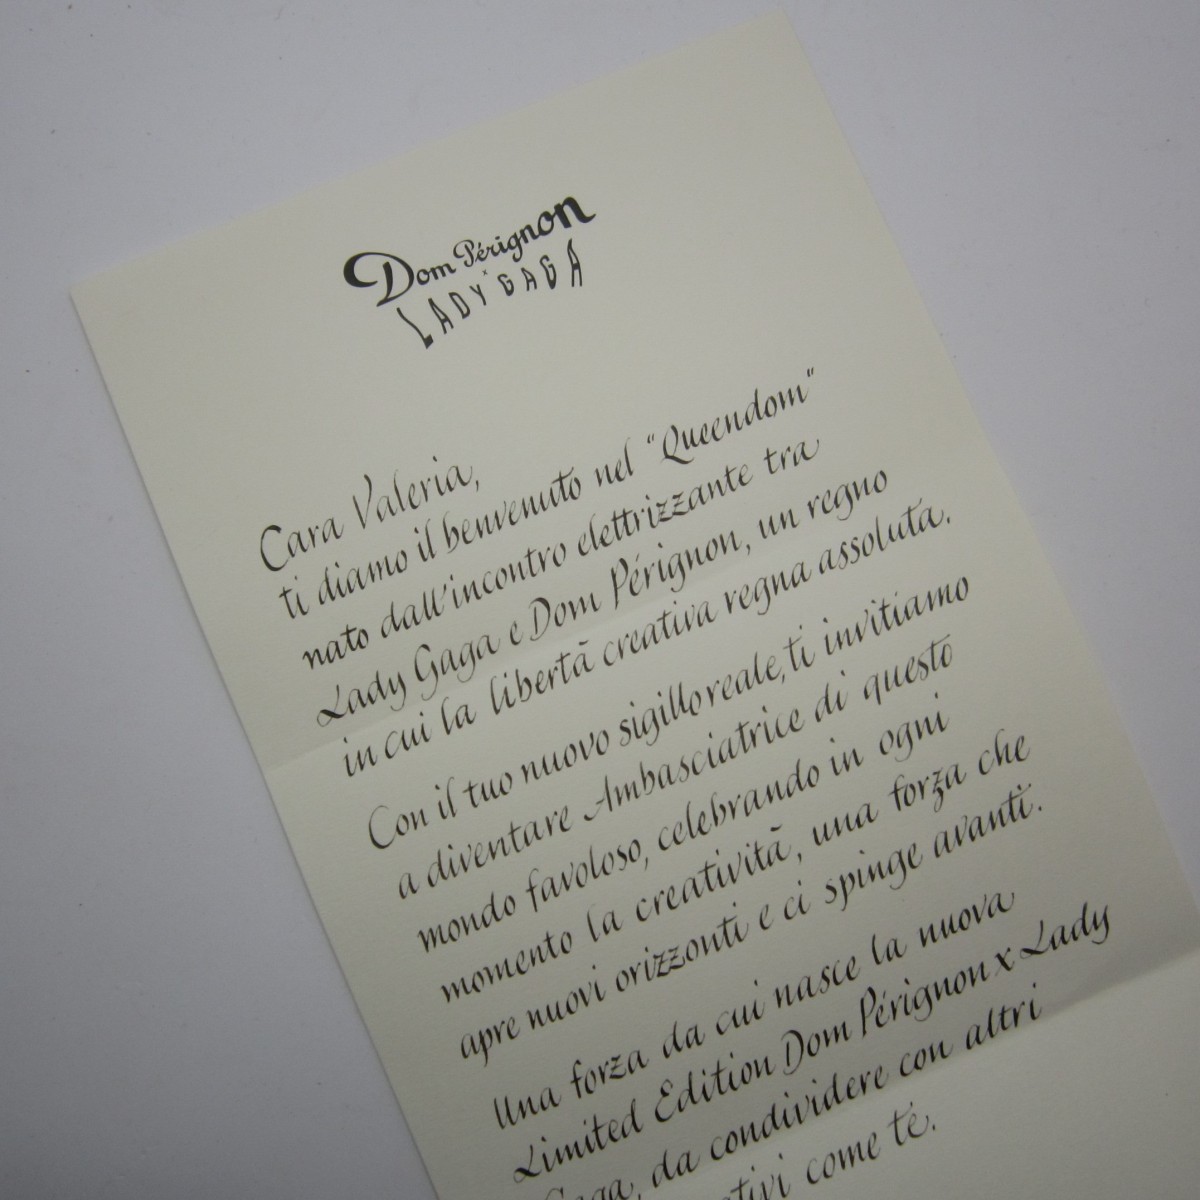 Dom Pérignon
x
LADY GAGA
Cara Valeria,
ti diamo il benvenuto nel "Queendom"
nato dall'incontro elettrizzante tra
Lady Gaga e Dom Pérignon, un regno
in cui la libertà creativa regna assoluta.
Con il tuo nuovo sigillo reale, ti invitiamo
a diventare Ambasciatrice di questo
mondo favoloso, celebrando in ogni
momento la creatività, una forza che
apre nuovi orizzonti e ci spinge avanti.
Una forza da cui nasce la nuova
Limited Edition Dom Pérignon x Lady
Gaga, da condividere con altri
come te.